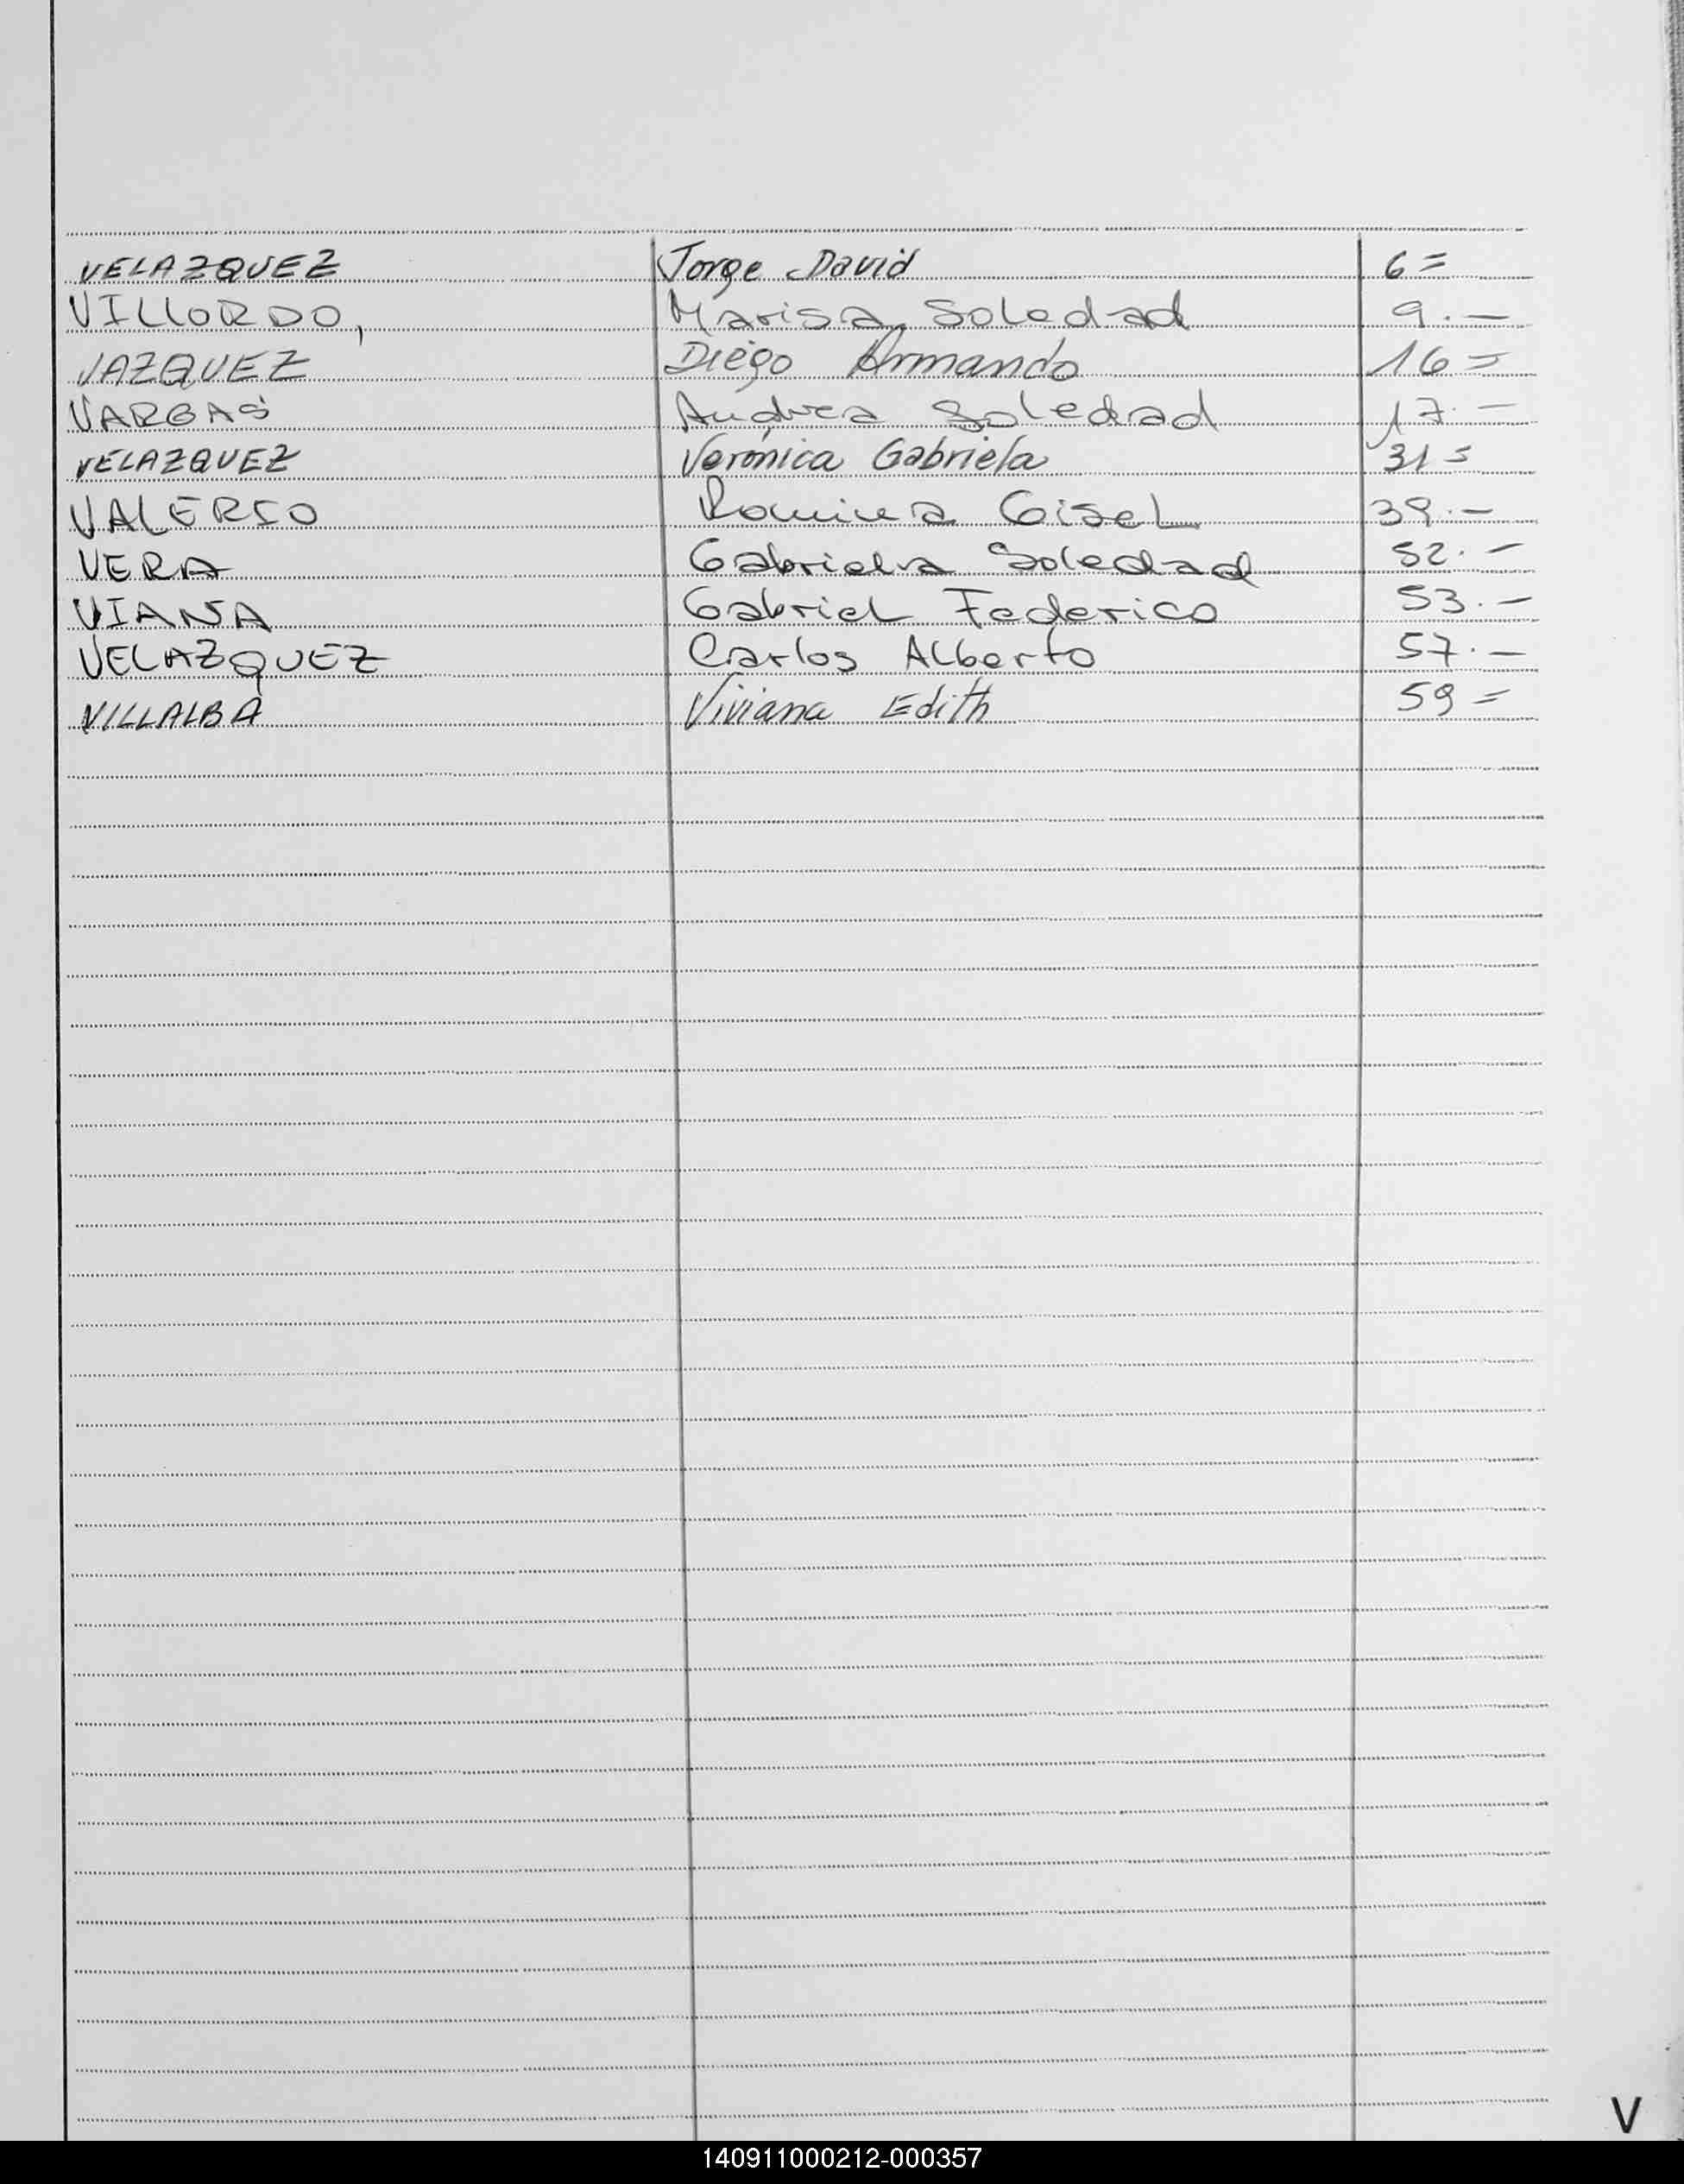 VELAZQUEZ Jorge David 6=
VILLORDO, Marisa Soledad 9.-
VAZQUEZ Diego Armando 16=
VARGAS Andrea Soledad 17.-
VELAZQUEZ Verónica Gabriela 31=
VALERIO Romina Gisel 39.-
VERA Gabriela Soledad 52.-
VIANA Gabriel Federico 53.-
VELAZQUEZ Carlos Alberto 57.-
VILLALBA Viviana Edith 59=
V
140911000212-000357